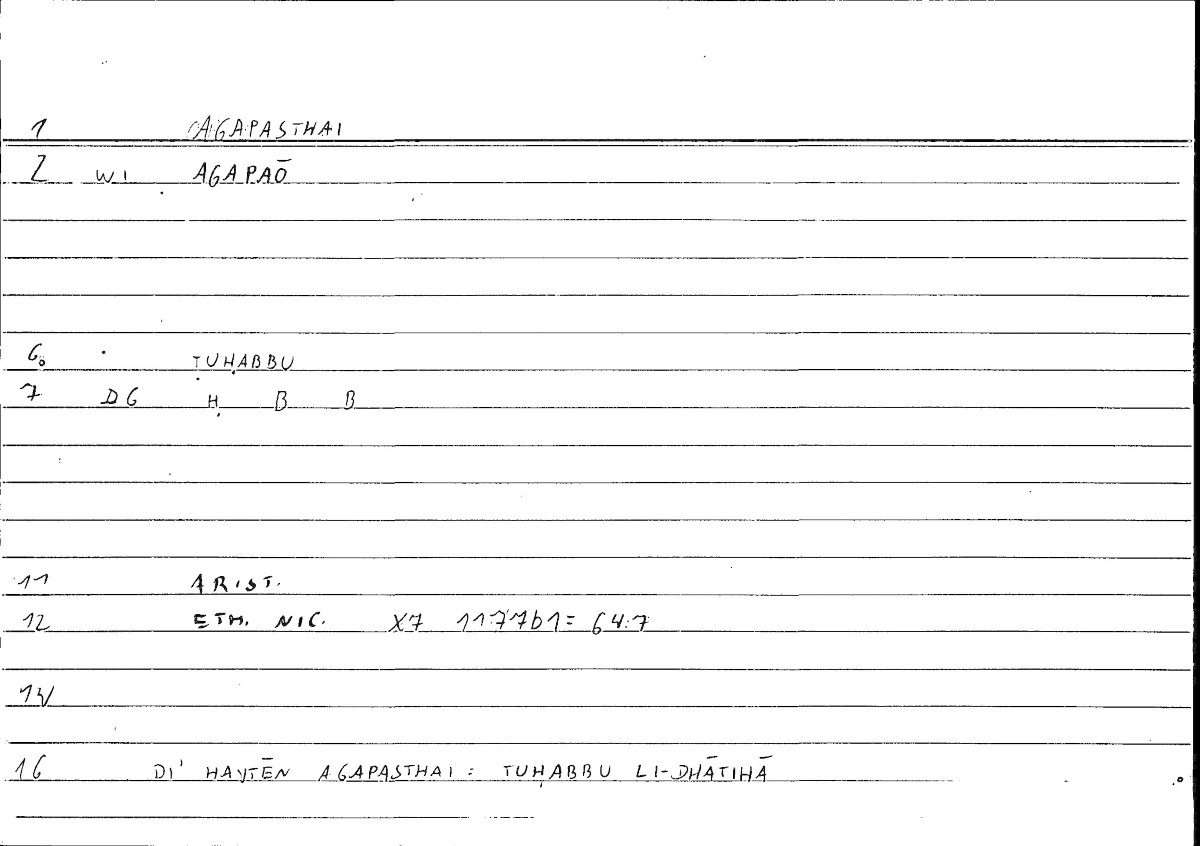 1 AGAPASTHAI
2 W1 AGAPAŌ
6. TUḤABBU
7 DG Ḥ B B
11 ARIST.
12 ETH. NIC. X7 1177b1= 64:7
14
16 DI' HAYTĒN AGAPASTHAI: TUḤABBU LI-DHĀTIHĀ